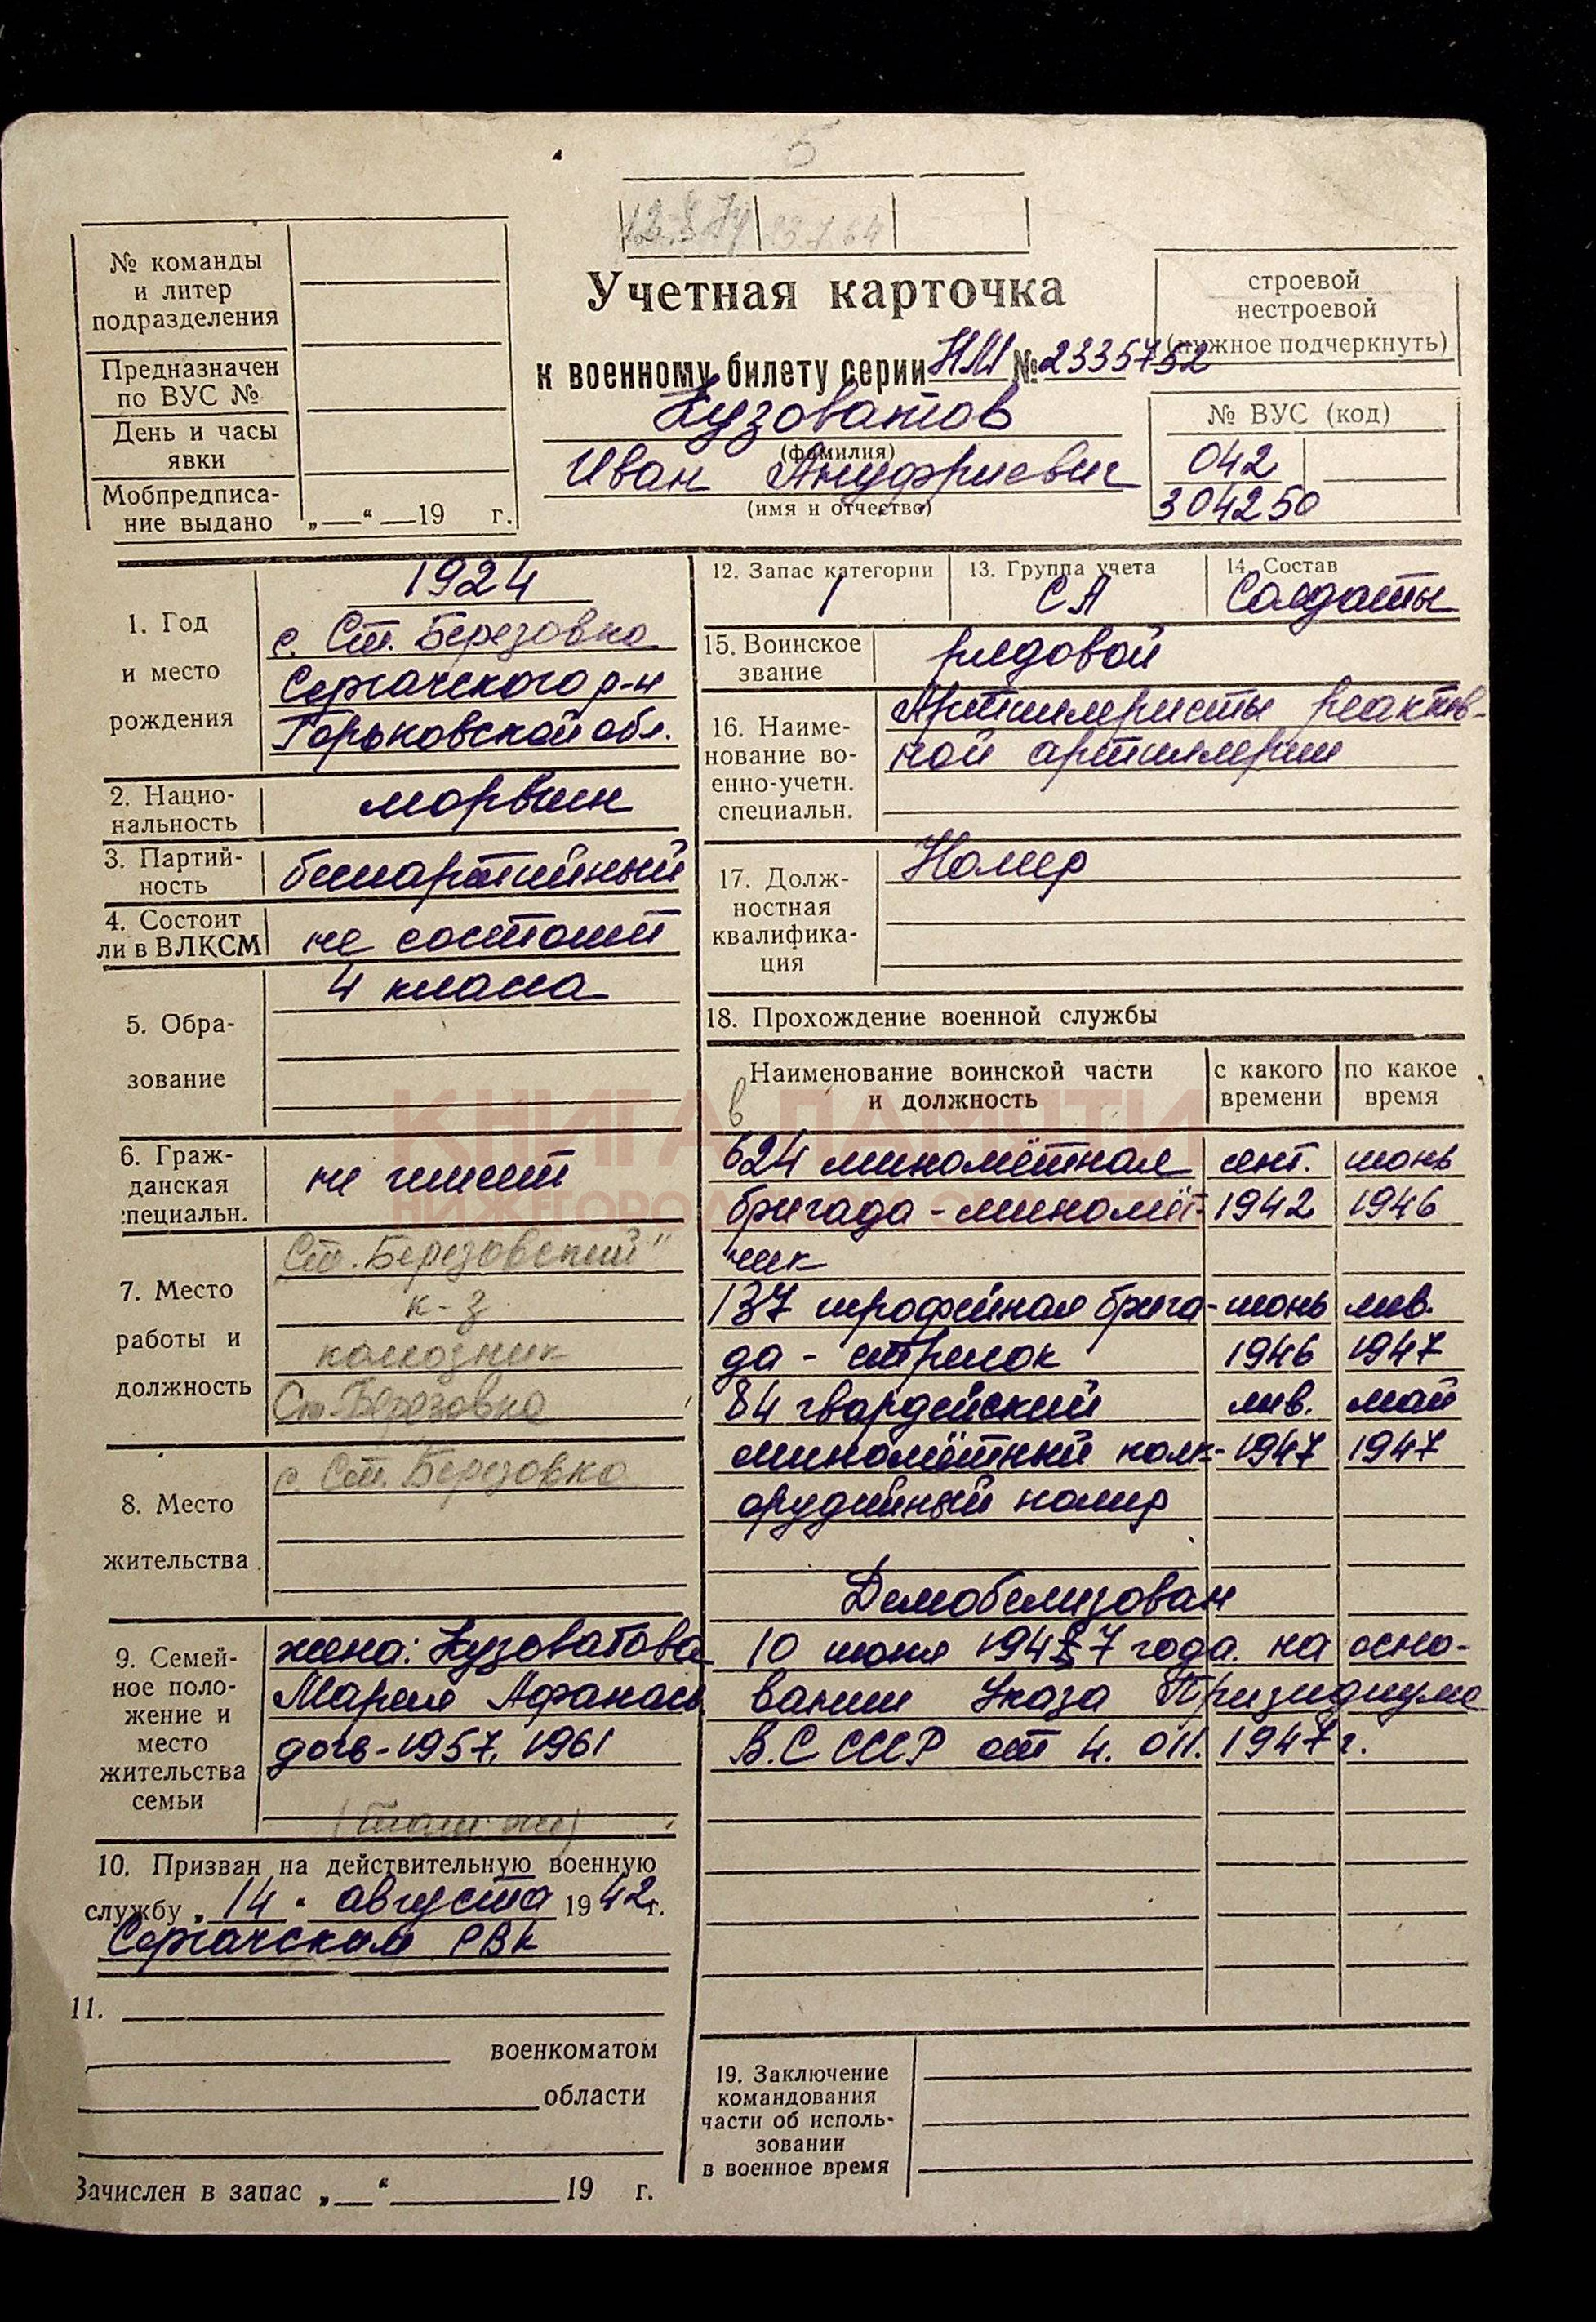 5
12.8.74 23.7.64
№ команды
и литер
подразделения
Предназначен
по ВУС №
День и часы
явки
Мобпредписа-
ние выдано „—“ —19 г.
Учетная карточка
к военному билету серии НМ № 2335752
Кузоватов
(фамилия)
Иван Ануфриевич
(имя и отчество)
строевой
нестроевой
(нужное подчеркнуть)
№ ВУС (код)
042
304250
1. Год
и место
рождения
1924
с. Ст. Березовка
Сергачского р-н
Горьковской обл.
2. Нацио-
нальность
морвин
3. Партий-
ность
беспартийный
4. Состоит
ли в ВЛКСМ
не состоит
5. Обра-
зование
4 класса
6. Граж-
данская
специальн.
не имеет
7. Место
работы и
должность
Ст. Березовский"
к-з
колхозник
Ст. Березовка
8. Место
жительства
с. Ст. Березовка
9. Семей-
ное поло-
жение и
место
жительства
семьи
жена: Кузоватова
Мария Афанась
дочь-1957, 1961
(там же)
10. Призван на действительную военную
службу „14“ августа 1942г.
Сергачским РВК
11.
военкоматом
области
Зачислен в запас „—“ 19 г.
12. Запас категории
1
13. Группа учета
СА
14. Состав
Солдаты
15. Воинское
звание
рядовой
16. Наиме-
нование во-
енно-учетн.
специальн.
Артиллеристы реактив-
ной артиллерии
17. Долж-
ностная
квалифика-
ция
Номер
18. Прохождение военной службы
Наименование воинской части
и должность
с какого
времени
по какое
время
в
624 миномётная сент. июнь
бригада - миномёт- 1942 1946
чик
137 трофейная брига- июнь янв.
да - стрелок 1946 1947
84 гвардейский янв. май
миномётный полк- 1947 1947
орудийный номер
Демобелизован
10 июня 1947 года на осно-
вании Указа Призидиума
В.С СССР от 4. 011. 1947г.
19. Заключение
командования
части об исполь-
зовании
в военное время
КНИГА ПАМЯТИ
НИЖЕГОРОДСКОЙ ОБЛАСТИ